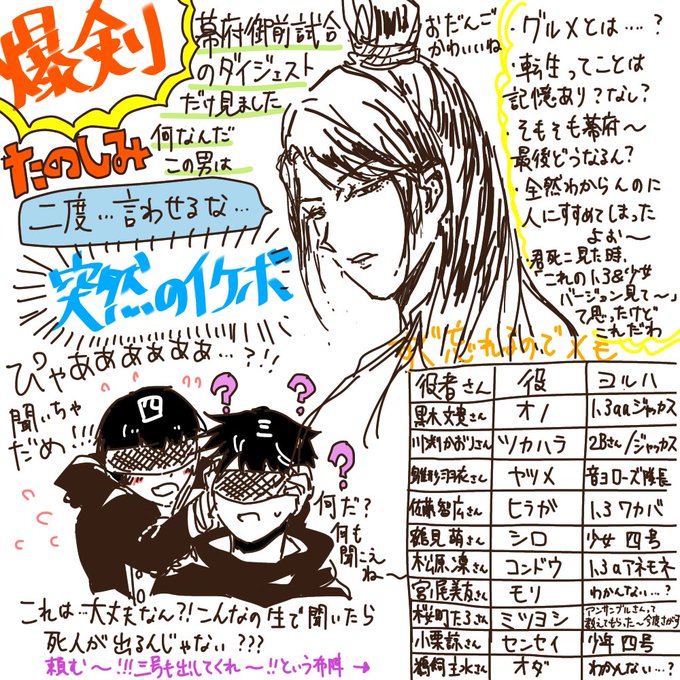 爆剣
たのしみ
幕府御前試合
のダイジェスト
だけ見ました
何なんだ
この男は
おだんご
かわいいね
二度…言わせるな…
突然のイケボ
・グルメとは…?
・転生ってことは
記憶あり?なし?
・そもそも幕府〜
最後どうなるん?
・全然わからんのに
人にすすめてしまった
よぉ〜
・君死ニ見た時、
「これの1.3&少女
バージョン見て〜」
て思ったけど
これだわ
すぐ忘れるのでメモ
ぴゃあああああぁ…?!!
聞いちゃ
だめ!!!
四
三
? ? ?
何だ?
何も
聞こえ
ね〜
これは…大丈夫なん?!こんなの生で聞いたら
死人が出るんじゃない???
頼む〜!!!三号も出してくれ〜!!という布陣→
役者さん 役 ヨルハ
黒木文貴さん オノ 1.3aaジャッカス
川渕かおりさん ツカハラ 2Bさん/ジャッカス
雛形羽衣さん ヤツメ 音ヨローズ隊長
佐藤智広さん ヒラガ 1.3ワカバ
鶴見萌さん シロ 少女 四号
松原凛さん コンドウ 1.3aアネモネ
宮尾美友さん モリ わかんない…?
桜町たろさん ミツヨシ アンサンブルさんって教えてもらった〜今度さがす
小栗諒さん センセイ 少年 四号
鵜飼主水さん オダ わかんない…?